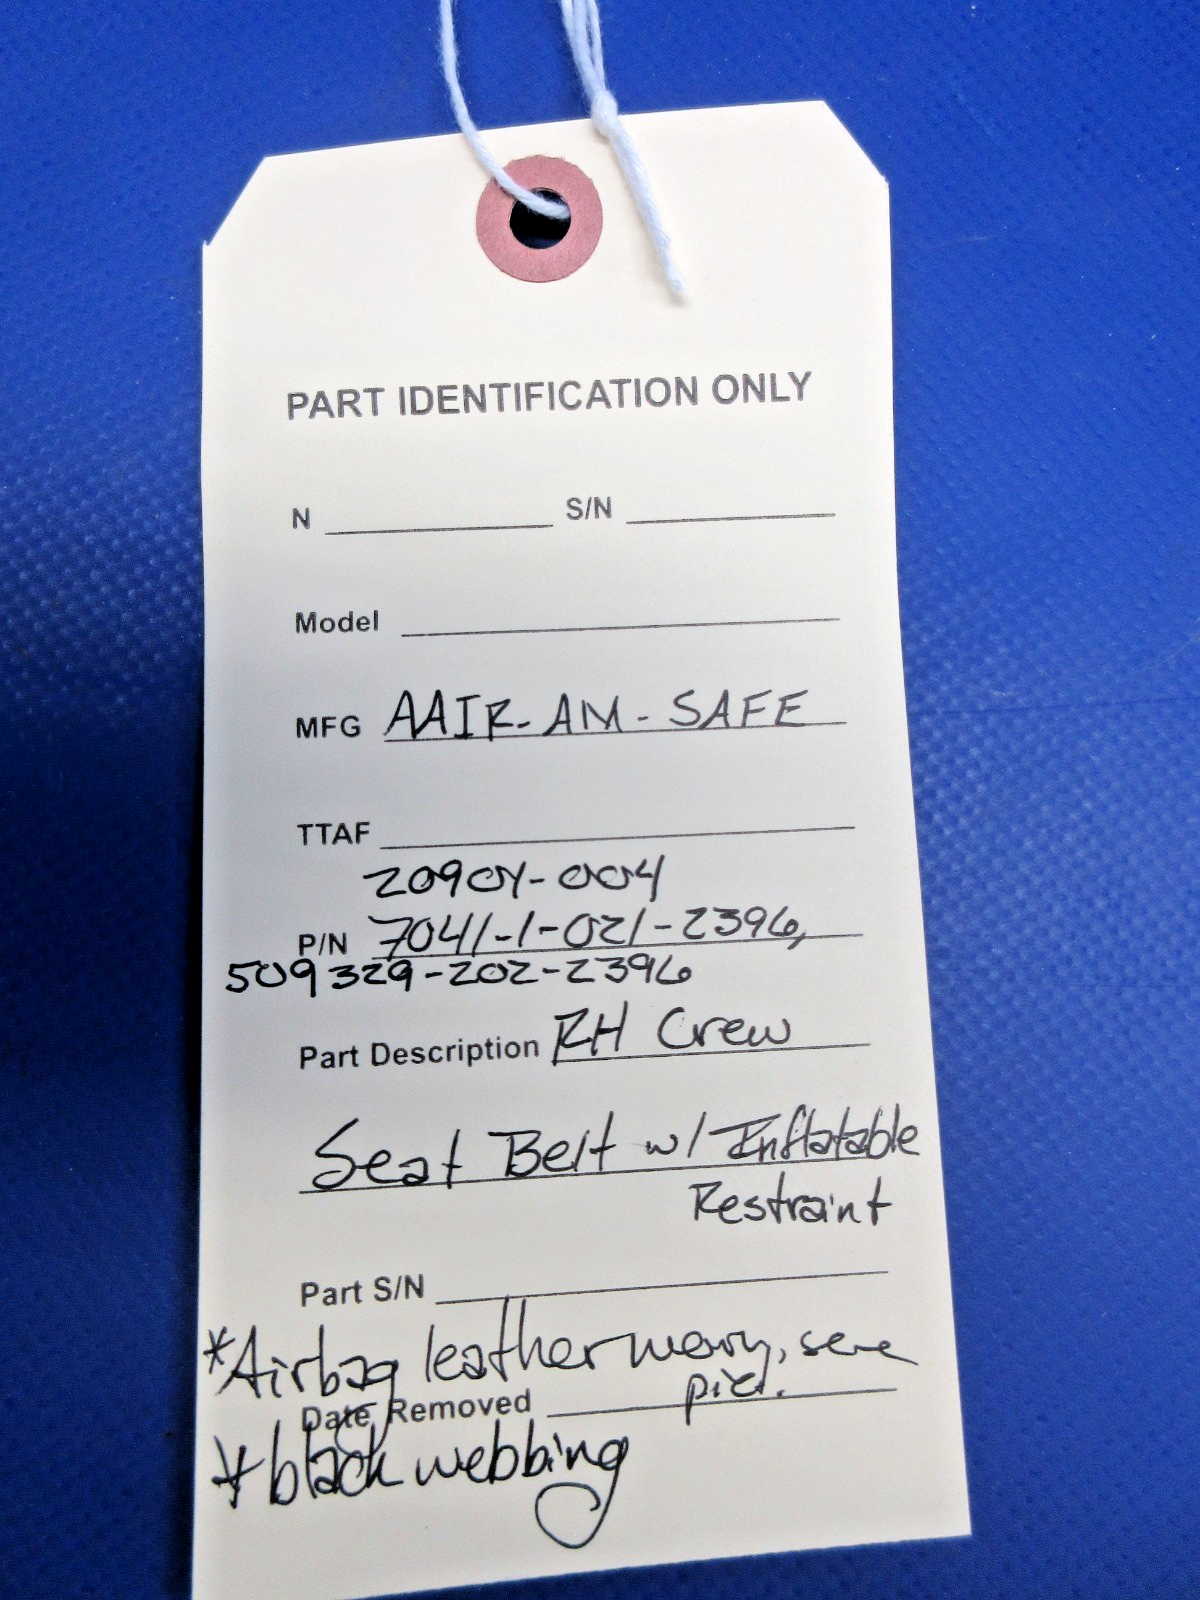 PART IDENTIFICATION ONLY
N S/N
Model
MFG AAIR-AM-SAFE
TTAF
20904-004
P/N 7041-1-021-2396,
509329-202-2396
Part Description RH Crew
Seat Belt w/ Inflatable
Restraint
Part S/N
*Airbag leather
Date Removed
*black webbing